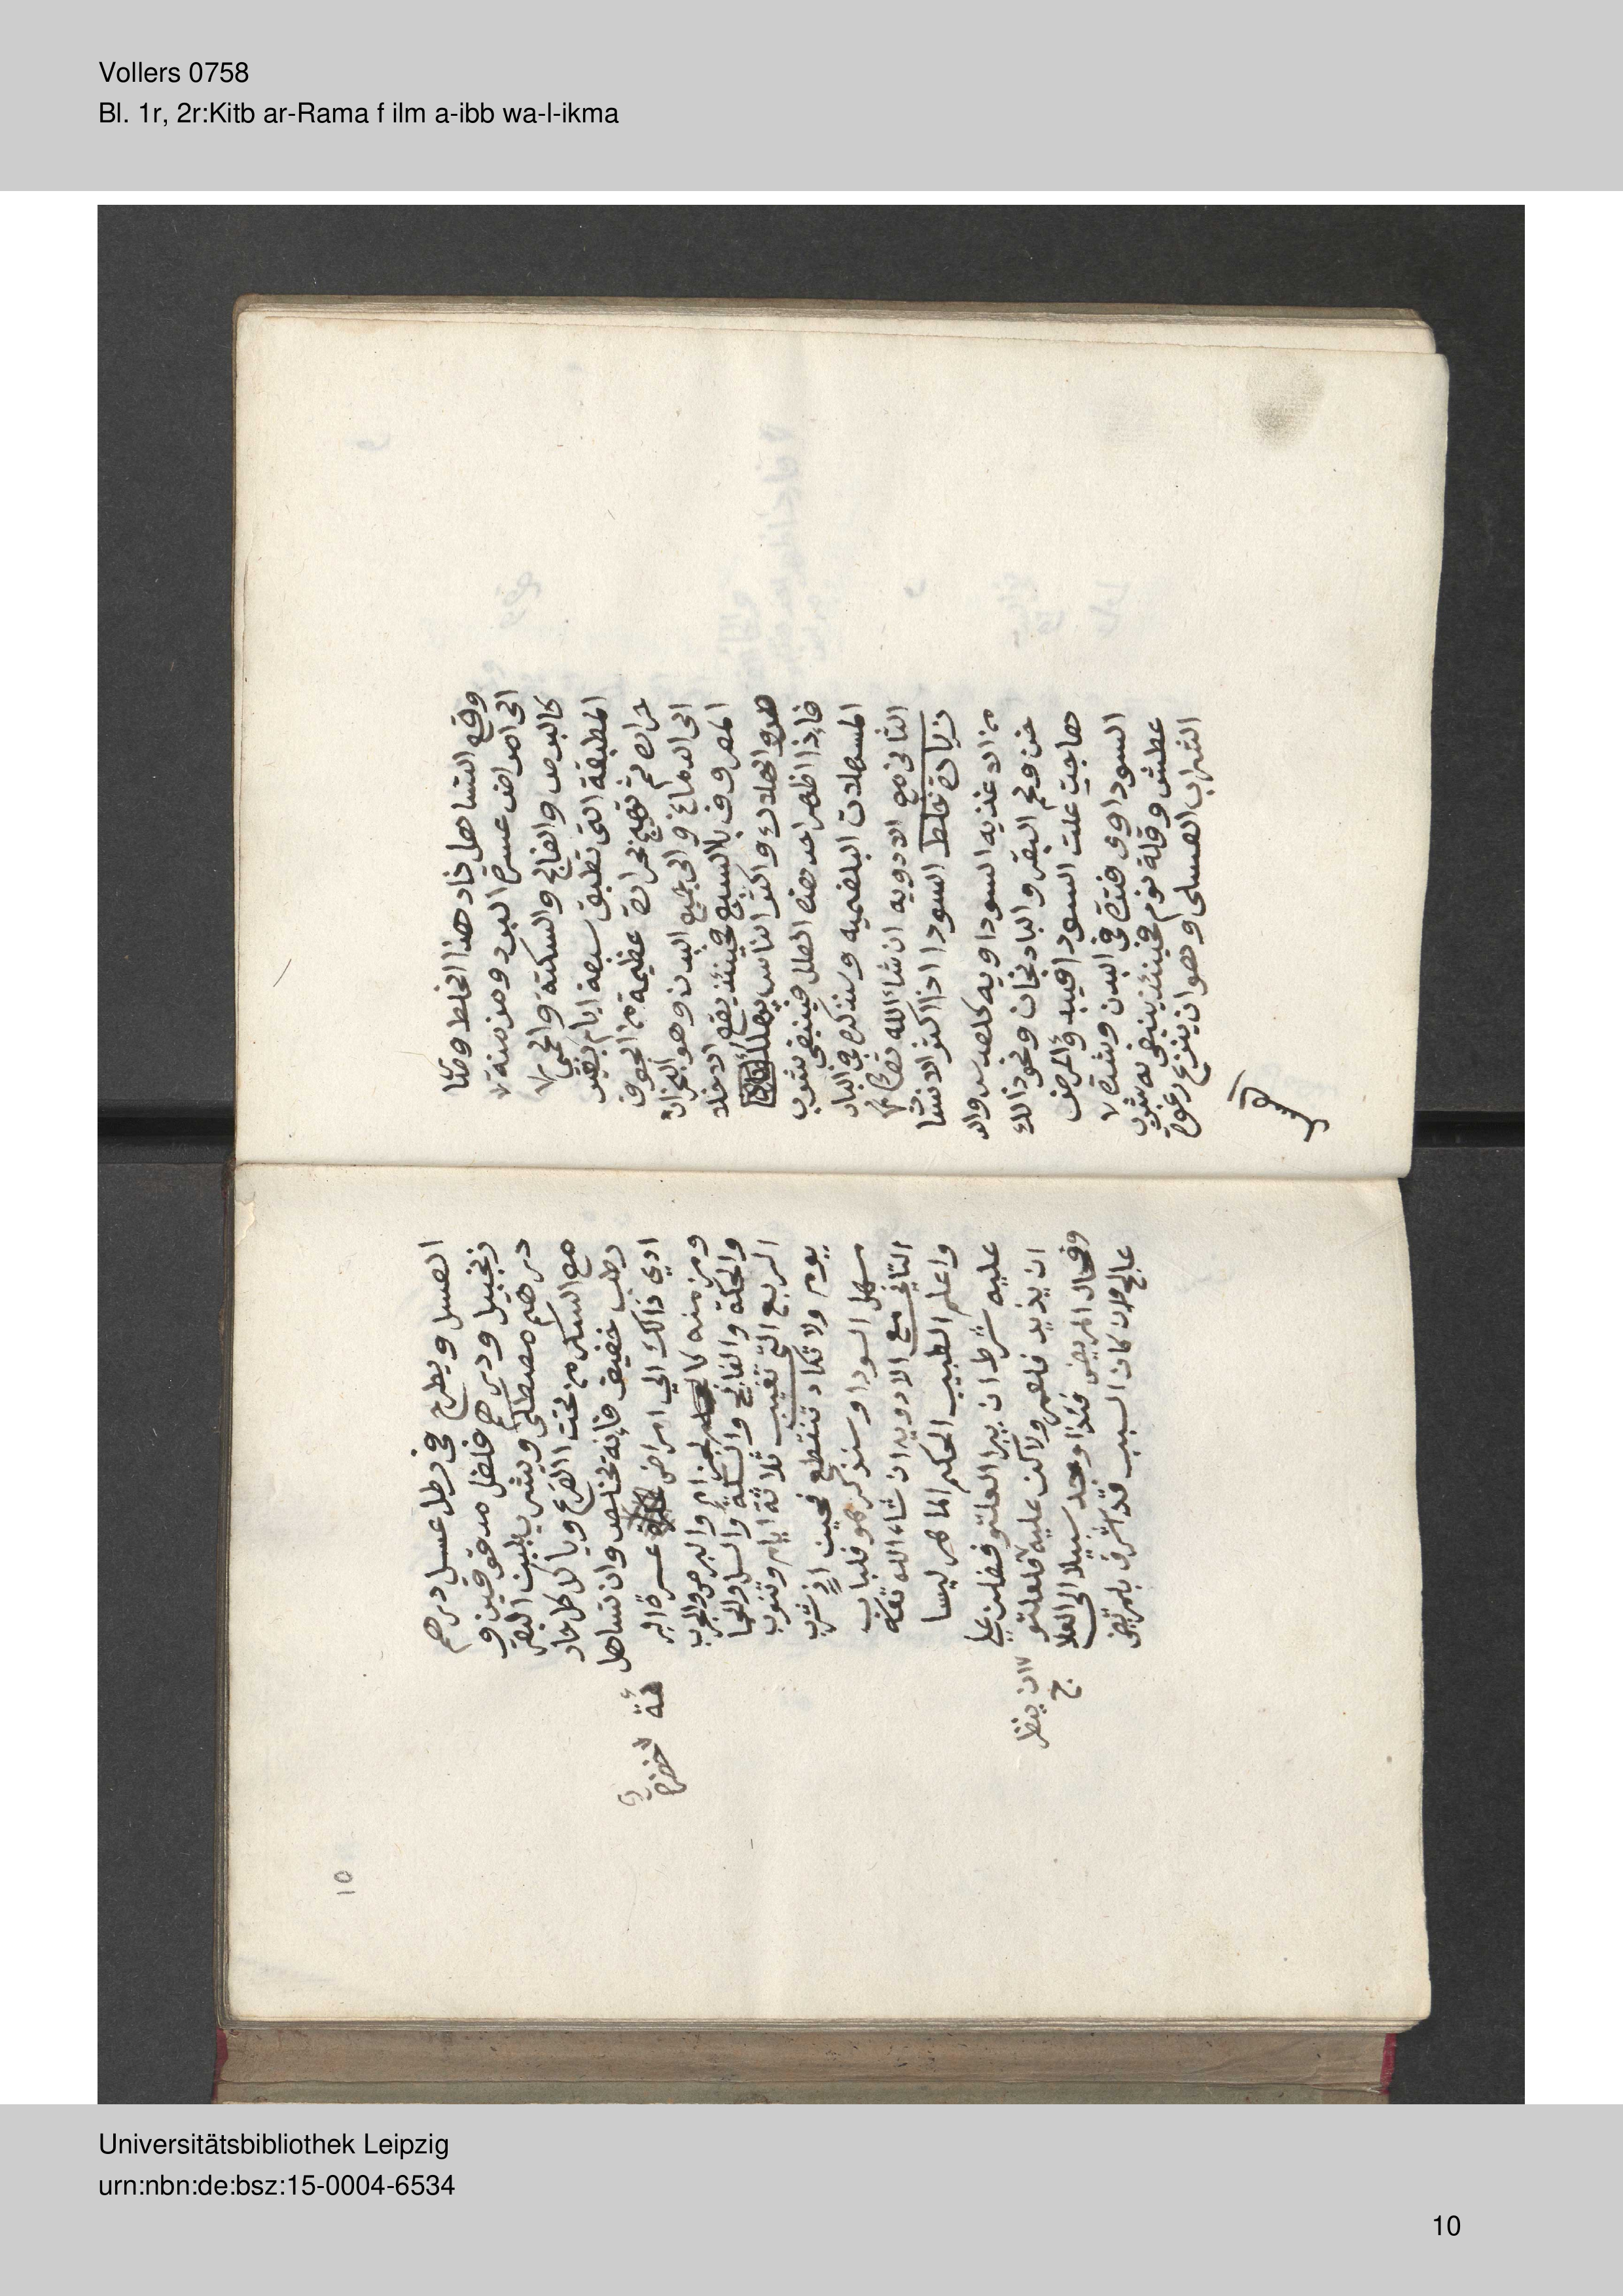 Vollers 0758
Bl. 1r, 2r:Kitb ar-Rama f ilm a-ibb wa-l-ikma
وقع التساهل خاد هذا الخلط وصا
الى امراض عسرة البرد ومزمنة لا
كالبرص والفالج والسكتة والحمى لا
المطبقة التى تطبق سبعة ايام بغير
عراق ثم تهيج بحرارة عظيمة من الجوف
الى الدماغ والى جميع البدن وهو البحران
المعروف بالسبع فحينئذ يقع الاخلا
طرو الهلاك واكثر الناس يهلك
فاذا ظهر احد هذه العلل فينبغى شرب
المسهلات البلغميه وسنذكره فى الباب
الثانى مع الادويه ان شاء الله تعالى
زيادة خلط السودا اذا اكثر الانسا
من الاغذيه السوداويه كالعدس وال
خن ولحم البقر والبادنجان ونحو ذالك
هاجت علت السودا فيبدؤ المرض
السوداوى فترة فى البدن وشدة لا
عطش وقلة نوم فحينئذ ينبغى له شرب
الشراب العسلى وهو ان ينزع رغوة
العسل ويطرح فى رطل عسل درهم
زنجبيل ودرهم فلفل مدقوقين و
درهم مصطكى ويشرب بلبن البقر
مع السكر من تحت الضرع وياكل كل حاد
رطب خفيف فانه تخلص وان تساهل
ادي ذالك الي امراض عسرة البر
ومزمنه كالجذام والبرص والجرب
والحكة والفالج والسكتة والسل والحما
الربع التى تغيب ثلاثة ايام وتنوب
يوم ولا تكاد تنقطع فحين اذٍ شرب
مسهل السودا وسنذكره هو فلباب
الثاني مع الادويه ان شاء الله تعله
واعلم الطبيب الحكيم الماهر ليسا
عليه شرط ان يبرا العلتو فضلن علي
ان يزيد فلعمر ولاكن عليه فلعلتو ان ينظر
وفحال المريض فئذا وجد سبيلا الى العلاج
عالج وان كان السبب قد اشرف بلمريض
10
Universitätsbibliothek Leipzig
urn:nbn:de:bsz:15-0004-6534
10